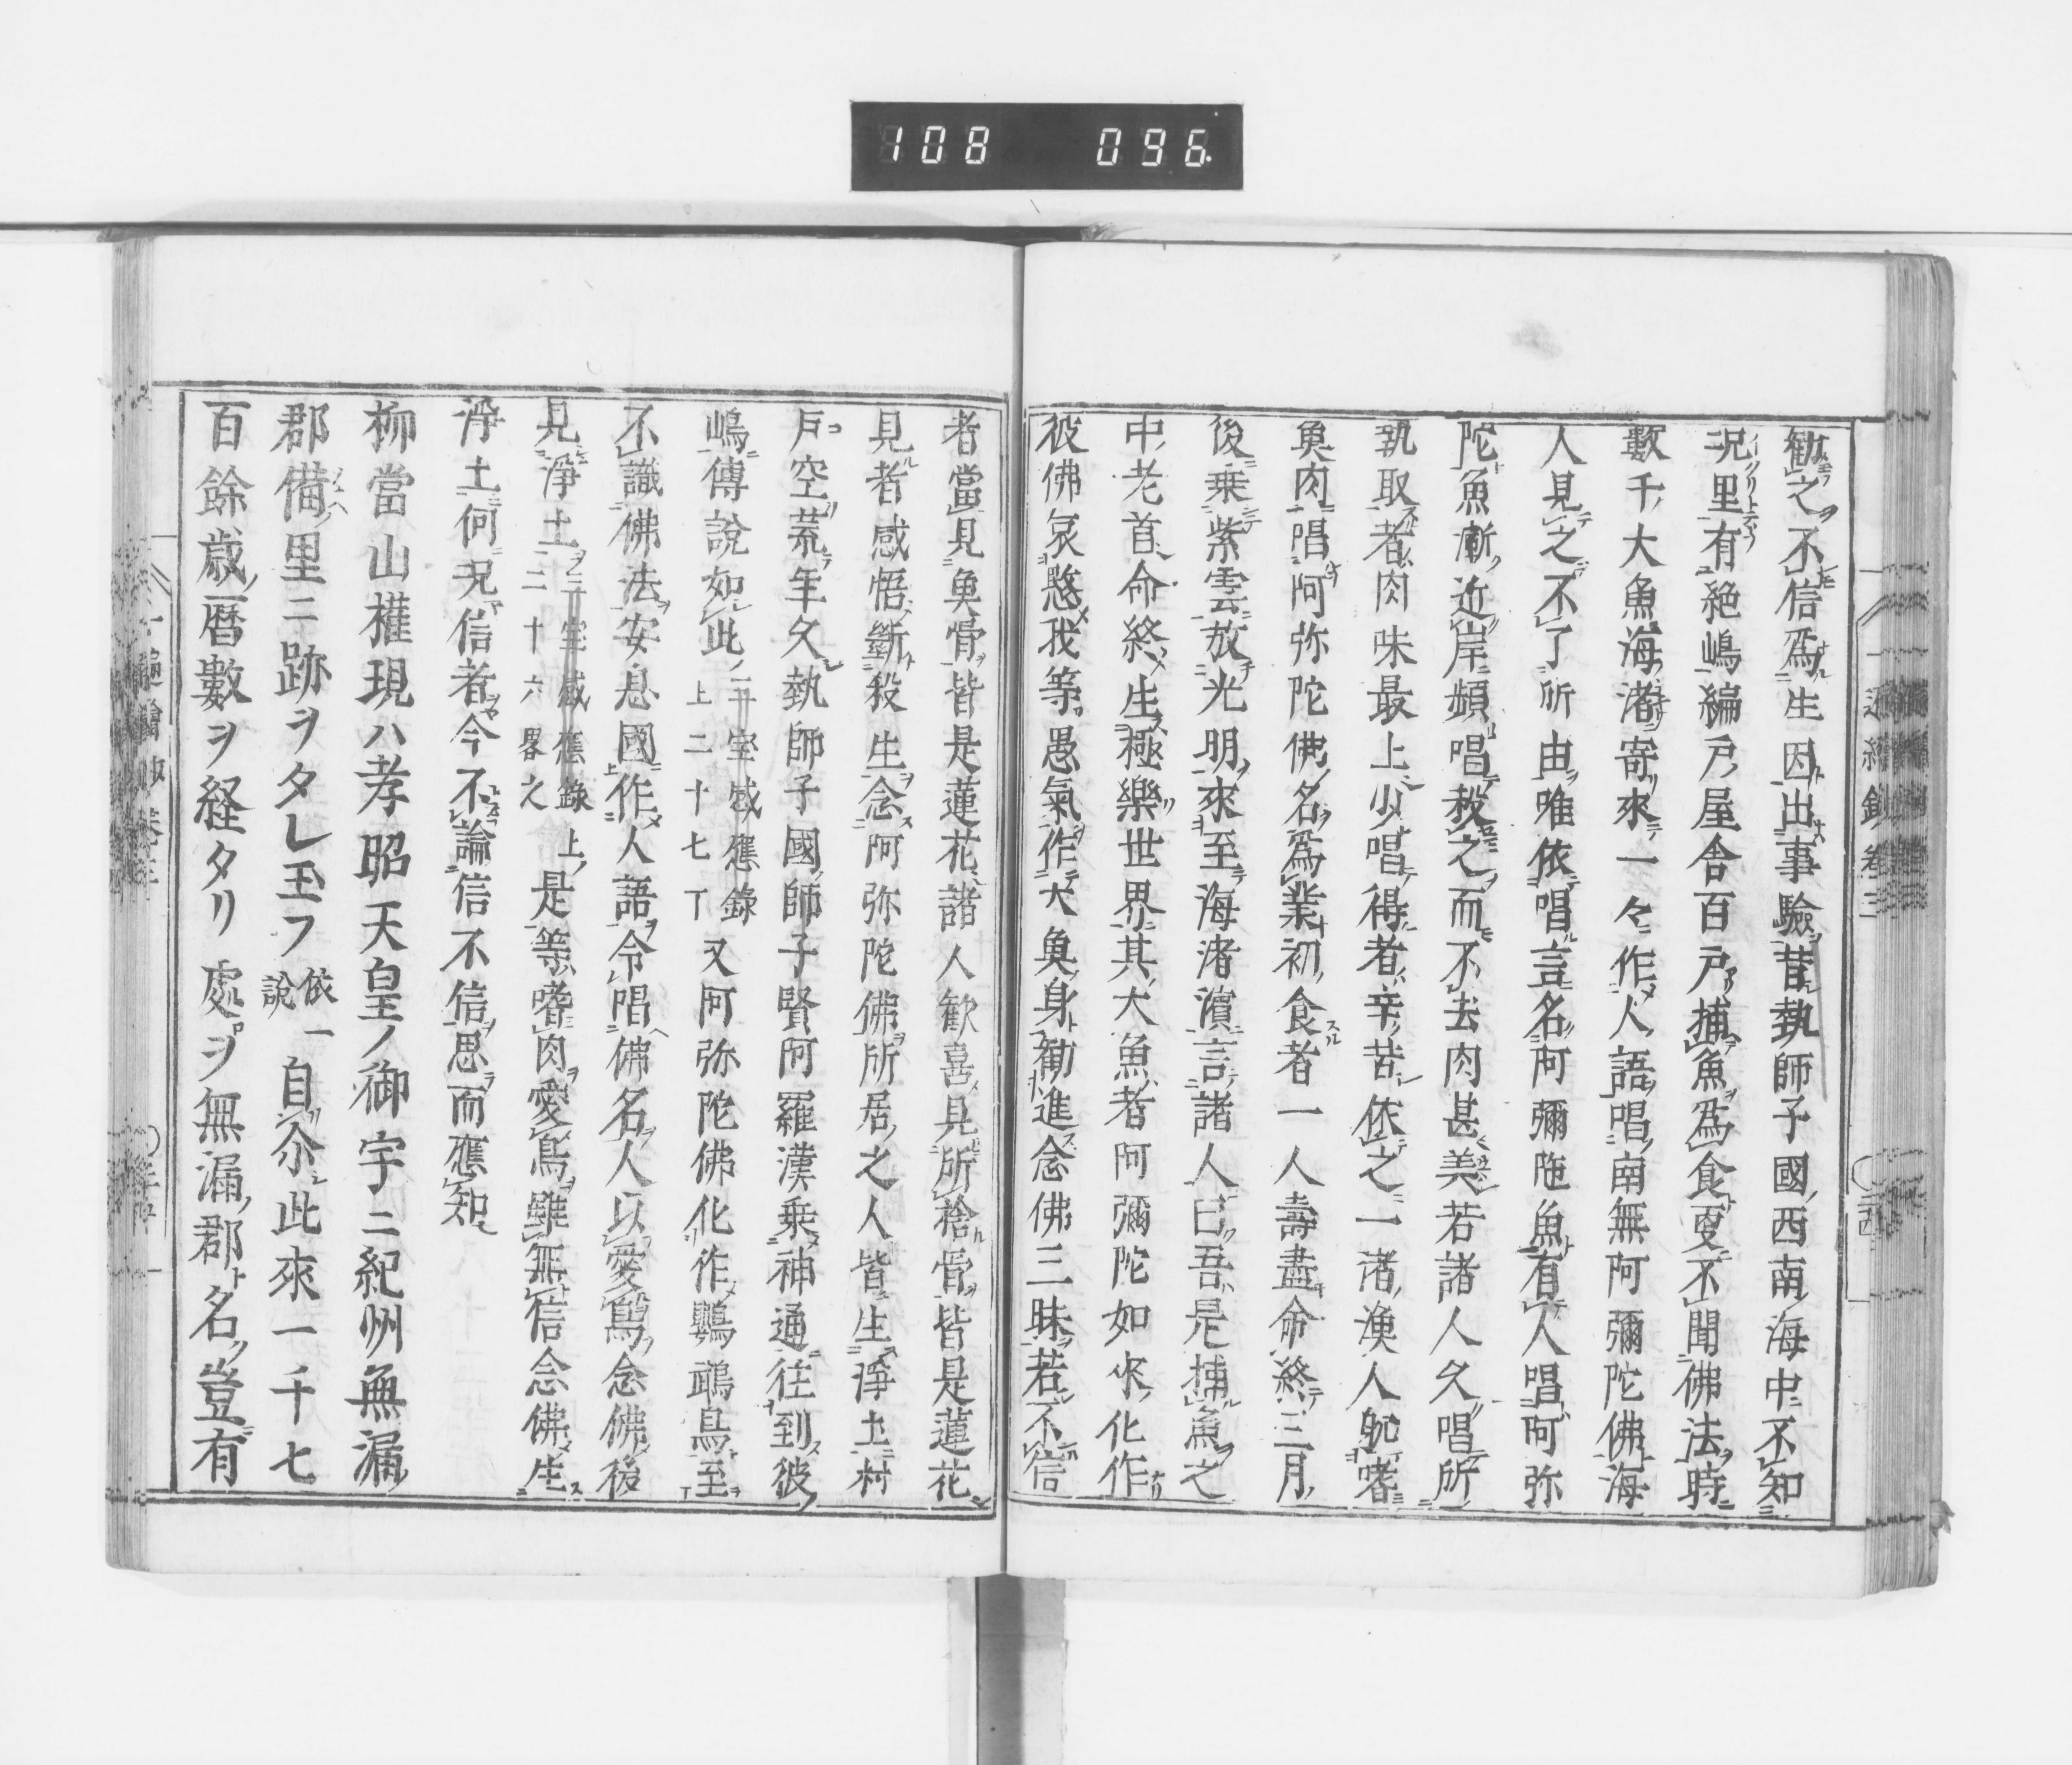 108 096
勸之不信爲生因出事驗昔執師子國西南海中不知
況里有絶嶋編戸屋舎百戸捕魚爲食更不聞佛法時
數千大魚海渚寄來一々作人語唱南無阿彌陀佛海
人見之不了所由唯依唱言名阿彌陁魚有人唱阿弥
陀魚漸近岸頻唱殺之而不去肉甚美若諸人久唱所
執取者肉味最上少唱得者辛苦依之一渚漁人躭嗜
魚肉唱阿弥陀佛名爲業初食者一人壽盡命終三月
後乗紫雲放光明來至海渚濱言諸人曰吾是捕魚之
中老首命終生極樂世界其大魚者阿彌陀如來化作
彼佛哀愍我等愚氣作大魚身勸進念佛三昧若不信
者當見魚骨皆是蓮花諸人歓喜見所捨骨皆是蓮花
見者感悟斷殺生念阿弥陀佛所居之人皆生淨土村
戸空荒年久執師子國師子賢阿羅漢乗神通往到彼
嶋傳說如此三宝感應錄上二十七丁又阿弥陀佛化作鸚鵡鳥至
不識佛法安息國作人語令唱佛名人以愛鳥念佛後
見淨土三宝感應錄上二十六畧之是等嗜肉愛鳥雖無信念佛生
淨土何況信者今不論信不信思而應知
柳當山權現ハ孝昭天皇ノ御宇ニ紀州無漏
郡備里ニ跡ヲタレ玉フ依一說自尒此來一千七
百餘歳暦數ヲ経タリ處ヲ無漏郡名豈有